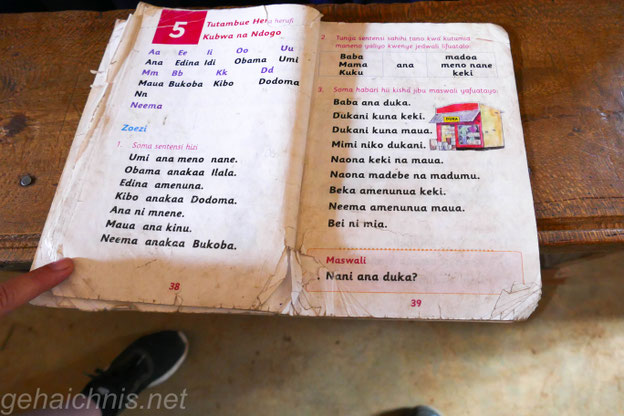 5
Tutambue Heru herufi
Kubwa na Ndogo
Aa Ee Ii Oo Uu
Ana Edina Idi Obama Umi
Mm Bb Kk Dd
Maua Bukoba Kibo Dodoma
Nn
Neema
Zoezi
1. Soma sentensi hizi
Umi ana meno nane.
Obama anakaa Ilala.
Edina amenuna.
Kibo anakaa Dodoma.
Ana ni mnene.
Maua ana kinu.
Neema anakaa Bukoba.
38
2. Tunga sentensi sahihi tano kwa kutumia
maneno yaliyo kwenye jedwali lifuatalo.
Baba madoa
Mama ana meno nane
Kuku keki
3. Soma habari hii kisha jibu maswali yafuatayo.
Baba ana duka.
Dukani kuna keki.
Dukani kuna maua.
Mimi niko dukani.
Naona keki na maua.
Naona madebe na madumu.
Beka amenunua keki.
Neema amenunua maua.
Bei ni mia.
DUKA
Maswali
Nani ana duka?
39
gehaichnis.net